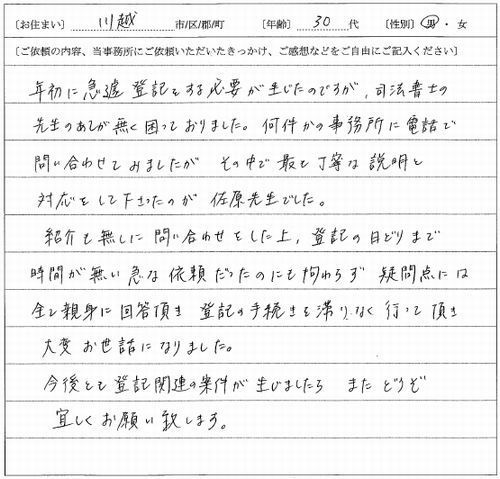 〔お住まい〕 川越 市/区/郡/町 〔年齢〕 30 代 〔性別〕 男・女
〔ご依頼の内容、当事務所にご依頼いただいたきっかけ、ご感想などをご自由にご記入ください〕
年初に急遽登記をする必要が生じたのですが、司法書士の
先生のあてが無く困っておりました。何件かの事務所に電話で
問い合わせてみましたが その中で最も丁寧な説明と
対応をして下さったのが 佐原先生でした。
紹介も無しに問い合わせをした上、登記の日どりまで
時間が無い急な依頼だったのにも拘わらず 疑問点には
全て親身に回答頂き 登記の手続きも滞りなく行って頂き
大変お世話になりました。
今後とも登記関連の案件が生じましたら またどうぞ
宜しくお願い致します。